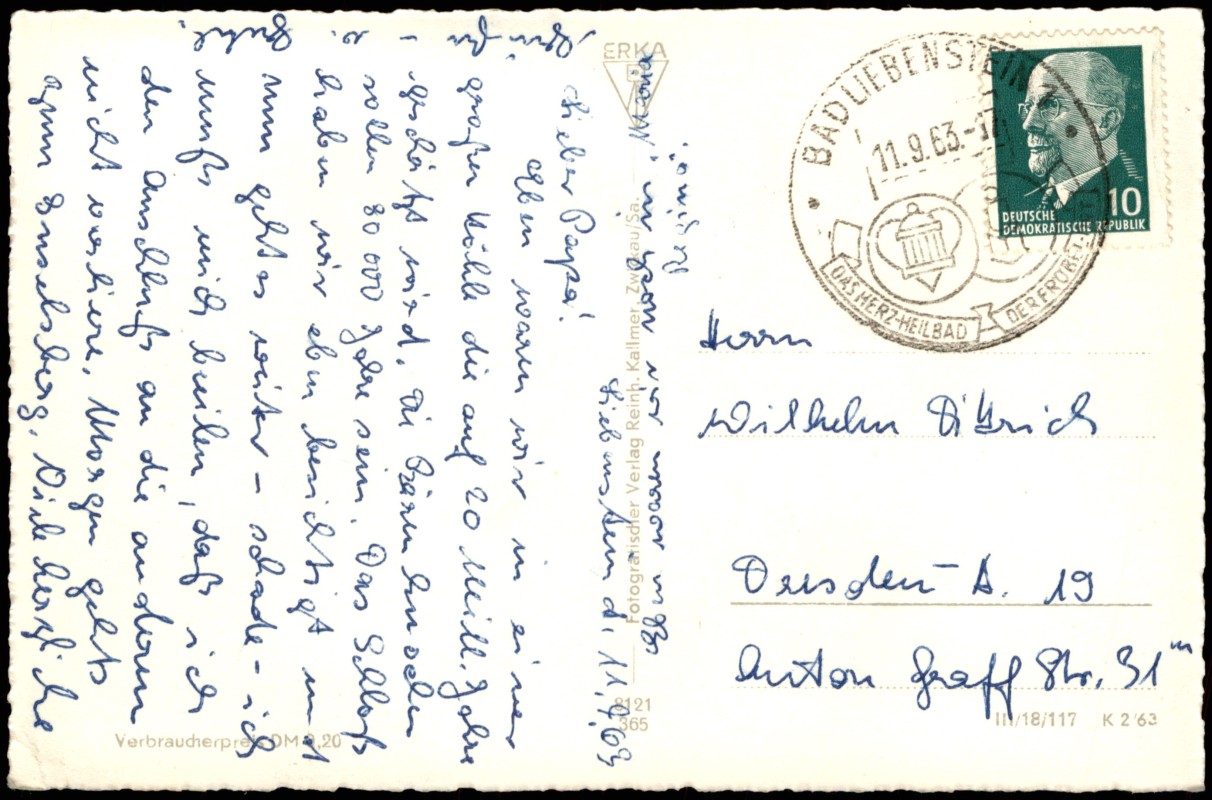 Liebenstein d. 11.9.63
Lieber Papa!
Eben waren wir in einer
großen Höhle die auf 20 Mill. Jahre
geschätzt wird. Die Bärenknochen
sollen 80 000 Jahre sein. Das Schloß
haben wir eben besichtigt und
nun geht es weiter – schade – ich
muß mich beeilen, daß ich
den Anschluß an die andern
nicht verliere. Morgen gehts
zum Inselsberg. Viele herzliche
Eben waren wir noch in "Maria
Regina".
ERKA
Fotografischer Verlag Reinh. Kallmer, Zwickau/Sa.
8121
365
Verbraucherpreis DM 0,20
BAD LIEBENSTEIN
11.9.63.-17
DAS HERZ-HEILBAD
DEUTSCHE
DEMOKRATISCHE REPUBLIK
10
Herrn
Wilhelm Dittrich
Dresden – A. 19
Anton Graff Str. 31 III
III/18/117 K 2/63